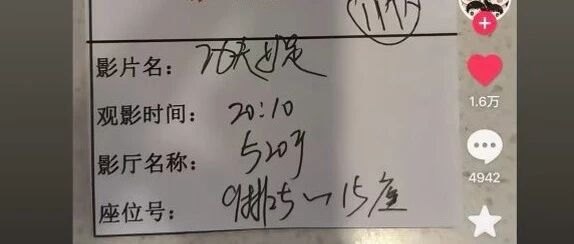 影片名：
观影时间：20:10
影厅名称：520厅
座位号：9排5一15座
1.6万
4942